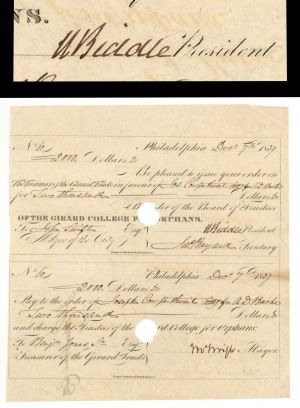 NS.
NBiddle President
No 6 Philadelphia Decr 7th 1837
2000. Dollars &c
Be pleased to issue your order on
The Treasurer of the Girard Trusts in favour of
for Two thousand Dollars &c
By order of the Board of Trustees
OF THE GIRARD COLLEGE FOR ORPHANS.
To John Swift Esqr NBiddle President
Mayor of the City Secretary
No 6 Philadelphia Decr 7th 1837
2000. Dollars &c
Pay to the order of Joseph
Two thousand Dollars &c
and charge the Trustees of the Girard College for Orphans.
To Esqr Mayor.
Treasurer of the Girard Trusts